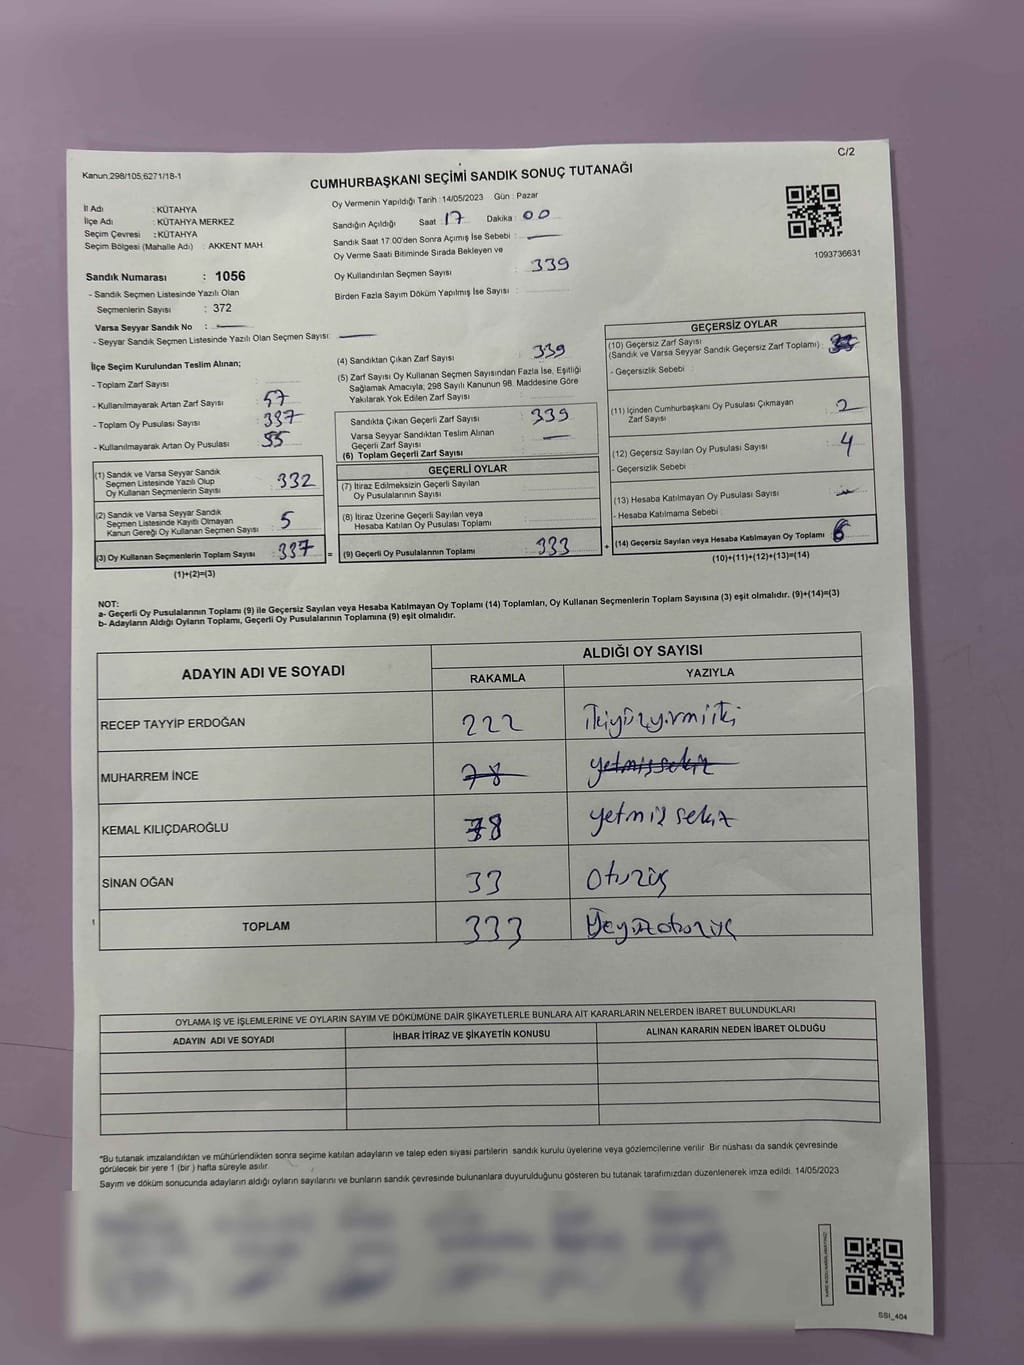 C/2
Kanun,298/105,6271/18-1
CUMHURBAŞKANI SEÇİMİ SANDIK SONUÇ TUTANAĞI
İl Adı : KÜTAHYA
İlçe Adı : KÜTAHYA MERKEZ
Seçim Çevresi : KÜTAHYA
Seçim Bölgesi (Mahalle Adı) : AKKENT MAH.
Oy Vermenin Yapıldığı Tarih : 14/05/2023 Gün : Pazar
Sandığın Açıldığı Saat : 17 Dakika : 00
Sandık Saat 17.00'den Sonra Açımış İse Sebebi :
Oy Verme Saati Bitiminde Sırada Bekleyen ve
Oy Kullandırılan Seçmen Sayısı : 339
Birden Fazla Sayım Döküm Yapılmış İse Sayısı :
1093736631
Sandık Numarası : 1056
- Sandık Seçmen Listesinde Yazılı Olan
Seçmenlerin Sayısı : 372
Varsa Seyyar Sandık No :
- Seyyar Sandık Seçmen Listesinde Yazılı Olan Seçmen Sayısı:
İlçe Seçim Kurulundan Teslim Alınan;
- Toplam Zarf Sayısı :
- Kullanılmayarak Artan Zarf Sayısı : 57
- Toplam Oy Pusulası Sayısı : 387
- Kullanılmayarak Artan Oy Pusulası : 55
(1) Sandık ve Varsa Seyyar Sandık
Seçmen Listesinde Yazılı Olup
Oy Kullanan Seçmenlerin Sayısı : 332
(2) Sandık ve Varsa Seyyar Sandık
Seçmen Listesinde Kayıtlı Olmayan
Kanun Gereği Oy Kullanan Seçmen Sayısı : 5
(3) Oy Kullanan Seçmenlerin Toplam Sayısı : 337
(1)+(2)=(3)
(4) Sandıktan Çıkan Zarf Sayısı : 339
(5) Zarf Sayısı Oy Kullanan Seçmen Sayısından Fazla İse, Eşitliği
Sağlamak Amacıyla; 298 Sayılı Kanunun 98. Maddesine Göre
Yakılarak Yok Edilen Zarf Sayısı :
Sandıkta Çıkan Geçerli Zarf Sayısı : 339
Varsa Seyyar Sandıktan Teslim Alınan
Geçerli Zarf Sayısı :
(6) Toplam Geçerli Zarf Sayısı :
GEÇERLİ OYLAR
(7) İtiraz Edilmeksizin Geçerli Sayılan
Oy Pusulalarının Sayısı :
(8) İtiraz Üzerine Geçerli Sayılan veya
Hesaba Katılan Oy Pusulası Toplamı :
= (9) Geçerli Oy Pusulalarının Toplamı : 333
GEÇERSİZ OYLAR
(10) Geçersiz Zarf Sayısı
(Sandık ve Varsa Seyyar Sandık Geçersiz Zarf Toplamı) :
- Geçersizlik Sebebi :
(11) İçinden Cumhurbaşkanı Oy Pusulası Çıkmayan
Zarf Sayısı : 2
(12) Geçersiz Sayılan Oy Pusulası Sayısı : 4
- Geçersizlik Sebebi :
(13) Hesaba Katılmayan Oy Pusulası Sayısı :
- Hesaba Katılmama Sebebi :
+ (14) Geçersiz Sayılan veya Hesaba Katılmayan Oy Toplamı : 6
(10)+(11)+(12)+(13)=(14)
NOT:
a- Geçerli Oy Pusulalarının Toplamı (9) ile Geçersiz Sayılan veya Hesaba Katılmayan Oy Toplamı (14) Toplamları, Oy Kullanan Seçmenlerin Toplam Sayısına (3) eşit olmalıdır. (9)+(14)=(3)
b- Adayların Aldığı Oyların Toplamı, Geçerli Oy Pusulalarının Toplamına (9) eşit olmalıdır.
ADAYIN ADI VE SOYADI
ALDIĞI OY SAYISI
RAKAMLA YAZIYLA
RECEP TAYYİP ERDOĞAN 222 ikiyüzyirmiiki
MUHARREM İNCE 78 yetmişsekiz
KEMAL KILIÇDAROĞLU 78 yetmiş sekiz
SİNAN OĞAN 33 otuzüç
TOPLAM 333 üçyüzotuzüç
OYLAMA İŞ VE İŞLEMLERİNE VE OYLARIN SAYIM VE DÖKÜMÜNE DAİR ŞİKAYETLERLE BUNLARA AİT KARARLARIN NELERDEN İBARET BULUNDUKLARI
ADAYIN ADI VE SOYADI İHBAR İTİRAZ VE ŞİKAYETİN KONUSU ALINAN KARARIN NEDEN İBARET OLDUĞU
*Bu tutanak imzalandıktan ve mühürlendikten sonra seçime katılan adayların ve talep eden siyasi partilerin sandık kurulu üyelerine veya gözlemcilerine verilir. Bir nüshası da sandık çevresinde
görülecek bir yere 1 (bir ) hafta süreyle asılır.
Sayım ve döküm sonucunda adayların aldığı oyların sayılarını ve bunların sandık çevresinde bulunanlara duyurulduğunu gösteren bu tutanak tarafımızdan düzenlenerek imza edildi. 14/05/2023
SSI_404